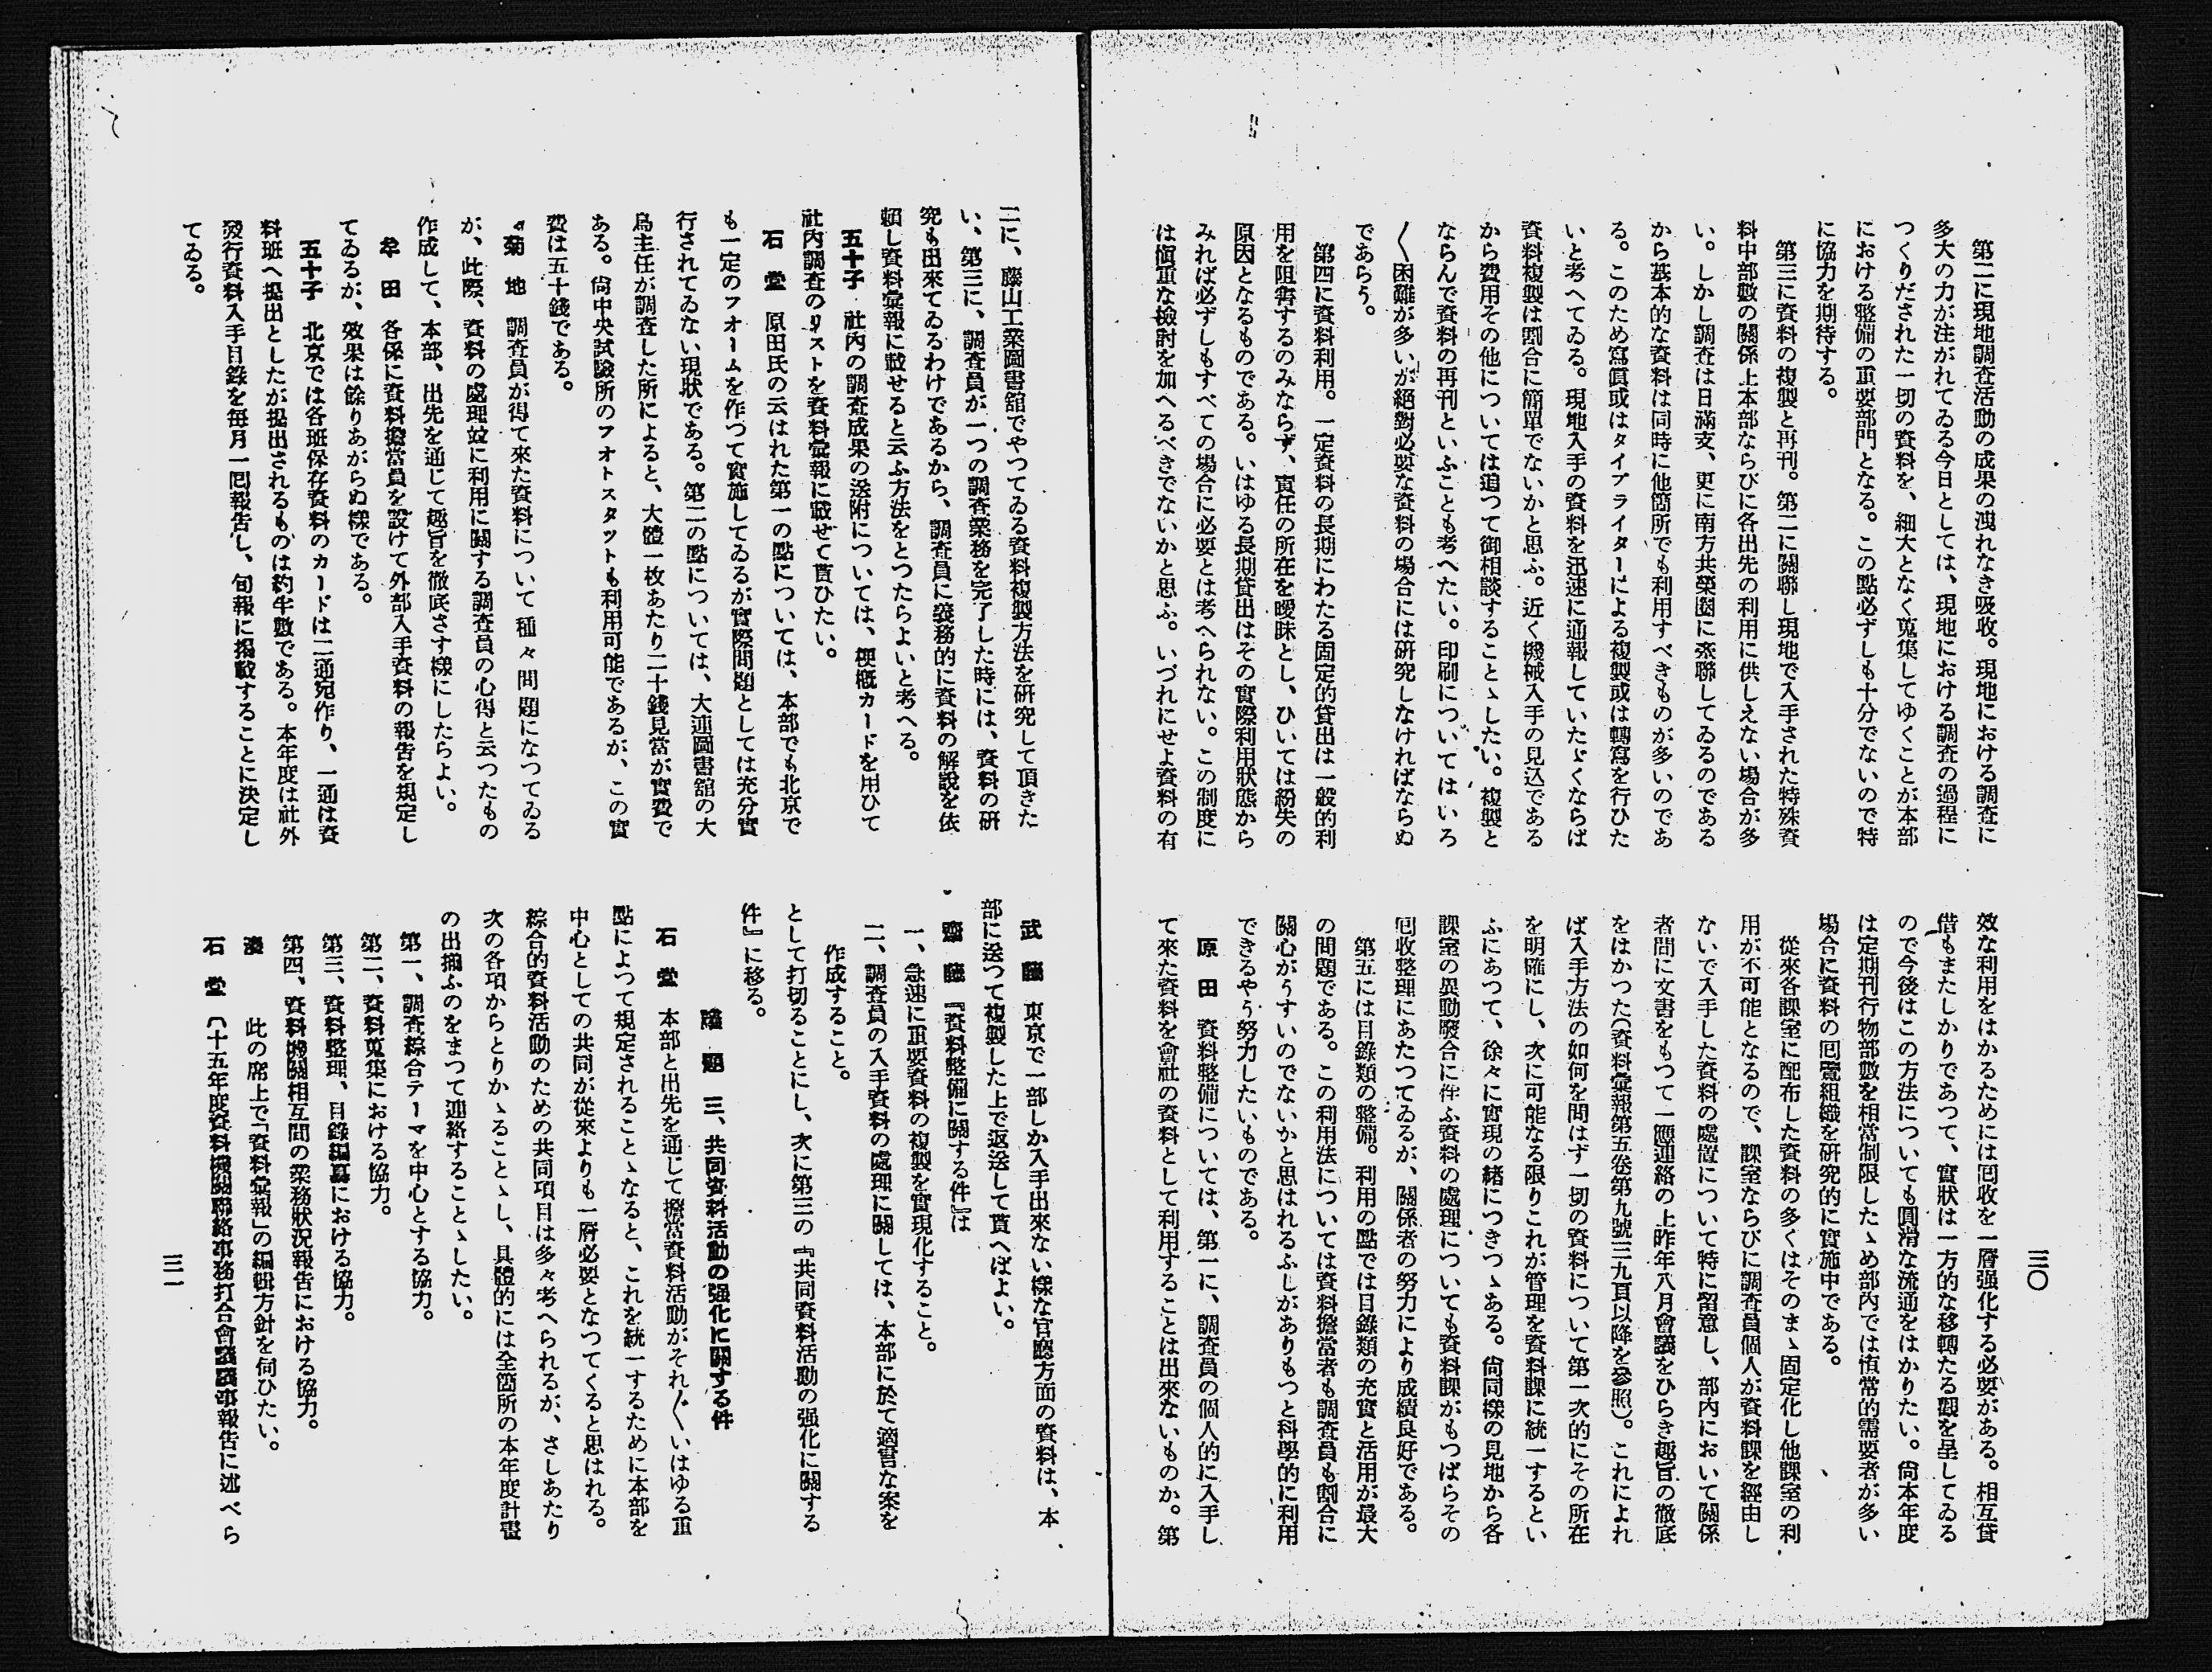 三〇
第二に現地調査活動の成果の洩れなき吸收。現地における調査に
多大の力が注がれてゐる今日としては、現地における調査の過程に
つくりだされた一切の資料を、細大となく蒐集してゆくことが本部
における整備の重要部門となる。この點必ずしも十分でないので特
に協力を期待する。
第三に資料の複製と再刊。第二に關聯し現地で入手された特殊資
料中部數の關係上本部ならびに各出先の利用に供しえない場合が多
い。しかし調査は日滿支、更に南方共榮圈に聯してゐるのである
から基本的な資料は同時に他箇所でも利用すべきものが多いのであ
る。このため寫眞或はタイプライターによる複製或は轉寫を行ひた
いと考へてゐる。現地入手の資料を迅速に通報していたゞくならば
資料複製は割合に簡單でないかと思ふ。近く機械入手の見込である
から費用その他については追つて御相談することゝしたい。複製と
ならんで資料の再刊といふことも考へたい。印刷についてはいろ
〱困難が多いが絕對必要な資料の場合には研究しなければならぬ
であらう。
第四に資料利用。一定資料の長期にわたる固定的貸出は一般的利
用を阻害するのみならず、責任の所在を曖昧とし、ひいては紛失の
原因となるものである。いはゆる長期貸出はその實際利用狀態から
みれば必ずしもすべての場合に必要とは考へられない。この制度に
は愼重な檢討を加へるべきでないかと思ふ。いづれにせよ資料の有
效な利用をはかるためには囘收を一層强化する必要がある。相互貸
借もまたしかりであつて、實狀は一方的な移轉たる觀を呈してゐる
ので今後はこの方法についても圓滑な流通をはかりたい。尙本年度
は定期刊行物部數を相當制限したゝめ部內では恒常的需要者が多い
場合に資料の囘覽組織を研究的に實施中である。
從來各課室に配布した資料の多くはそのまゝ固定化し他課室の利
用が不可能となるので、課室ならびに調査員個人が資料課を經由し
ないで入手した資料の處置について特に留意し、部內において關係
者間に文書をもつて一應連絡の上昨年八月會議をひらき趣旨の徹底
をはかつた(資料彙報第五卷第九號三九頁以降を參照)。これによれ
ば入手方法の如何を問はず一切の資料について第一次的にその所在
を明確にし、次に可能なる限りこれが管理を資料課に統一するとい
ふにあつて、徐々に實現の緒につきつゝある。尙同樣の見地から各
課室の異動廢合に伴ふ資料の處理についても資料課がもつぱらその
囘收整理にあたつてゐるが、關係者の努力により成績良好である。
第五には目錄類の整備。利用の點では目錄類の充實と活用が最大
の問題である。この利用法については資料擔當者も調査員も割合に
關心がうすいのでないかと思はれるふしがありもつと科學的に利用
できるやう努力したいものである。
原田　資料整備については、第一に、調査員の個人的に入手し
て來た資料を會社の資料として利用することは出來ないものか。第
二に、藤山工業圖書館でやつてゐる資料複製方法を研究して頂きた
い、第三に、調査員が一つの調査業務を完了した時には、資料の研
究も出來てゐるわけであるから、調査員に義務的に資料の解說を依
賴し資料彙報に載せると云ふ方法をとつたらよいと考へる。
五十子　社內の調査成果の送附については、梗槪カードを用ひて
社內調査のリストを資料彙報に載せて貰ひたい。
石堂　原田氏の云はれた第一の點については、本部でも北京で
も一定のフオームを作つて實施してゐるが實際問題としては充分實
行されてゐない現狀である。第二の點については、大連圖書館の大
鳥主任が調査した所によると、大體一枚あたり二十錢見當が實費で
ある。尙中央試驗所のフオトスタットも利用可能であるが、この實
費は五十錢である。
菊地　調査員が得て來た資料について種々問題になつてゐる
が、此際、資料の處理竝に利用に關する調査員の心得と云つたもの
作成して、本部、出先を通じて趣旨を徹底さす樣にしたらよい。
牟田　各係に資料擔當員を設けて外部入手資料の報告を規定し
てゐるが、效果は餘りあがらぬ樣である。
五十子　北京では各班保存資料のカードは二通宛作り、一通は資
料班へ提出としたが提出されるものは約半數である。本年度は社外
發行資料入手目錄を每月一囘報告し、旬報に揭載することに決定し
てゐる。
武藤　東京で一部しか入手出來ない樣な官廳方面の資料は、本
部に送つて複製した上で返送して貰へばよい。
齋藤　『資料整備に關する件』は
一、急速に重要資料の複製を實現化すること。
二、調査員の入手資料の處理に關しては、本部に於て適當な案を
作成すること。
として打切ることにし、次に第三の『共同資料活動の强化に關する
件』に移る。
議題　三、共同資料活動の强化に關する件
石堂　本部と出先を通じて擔當資料活動がそれ〲いはゆる重
點によつて規定されることゝなると、これを統一するために本部を
中心としての共同が從來よりも一層必要となつてくると思はれる。
綜合的資料活動のための共同項目は多々考へられるが、さしあたり
次の各項からとりかゝることゝし、具體的には全箇所の本年度計畫
の出揃ふのをまつて連絡することゝしたい。
第一、調査綜合テーマを中心とする協力。
第二、資料蒐集における協力。
第三、資料整理、目錄編纂における協力。
第四、資料機關相互間の業務狀況報告における協力。
湊　此の席上で「資料彙報」の編輯方針を伺ひたい。
石堂　(十五年度資料機關聯絡事務打合會議議事報告に述べら
三一